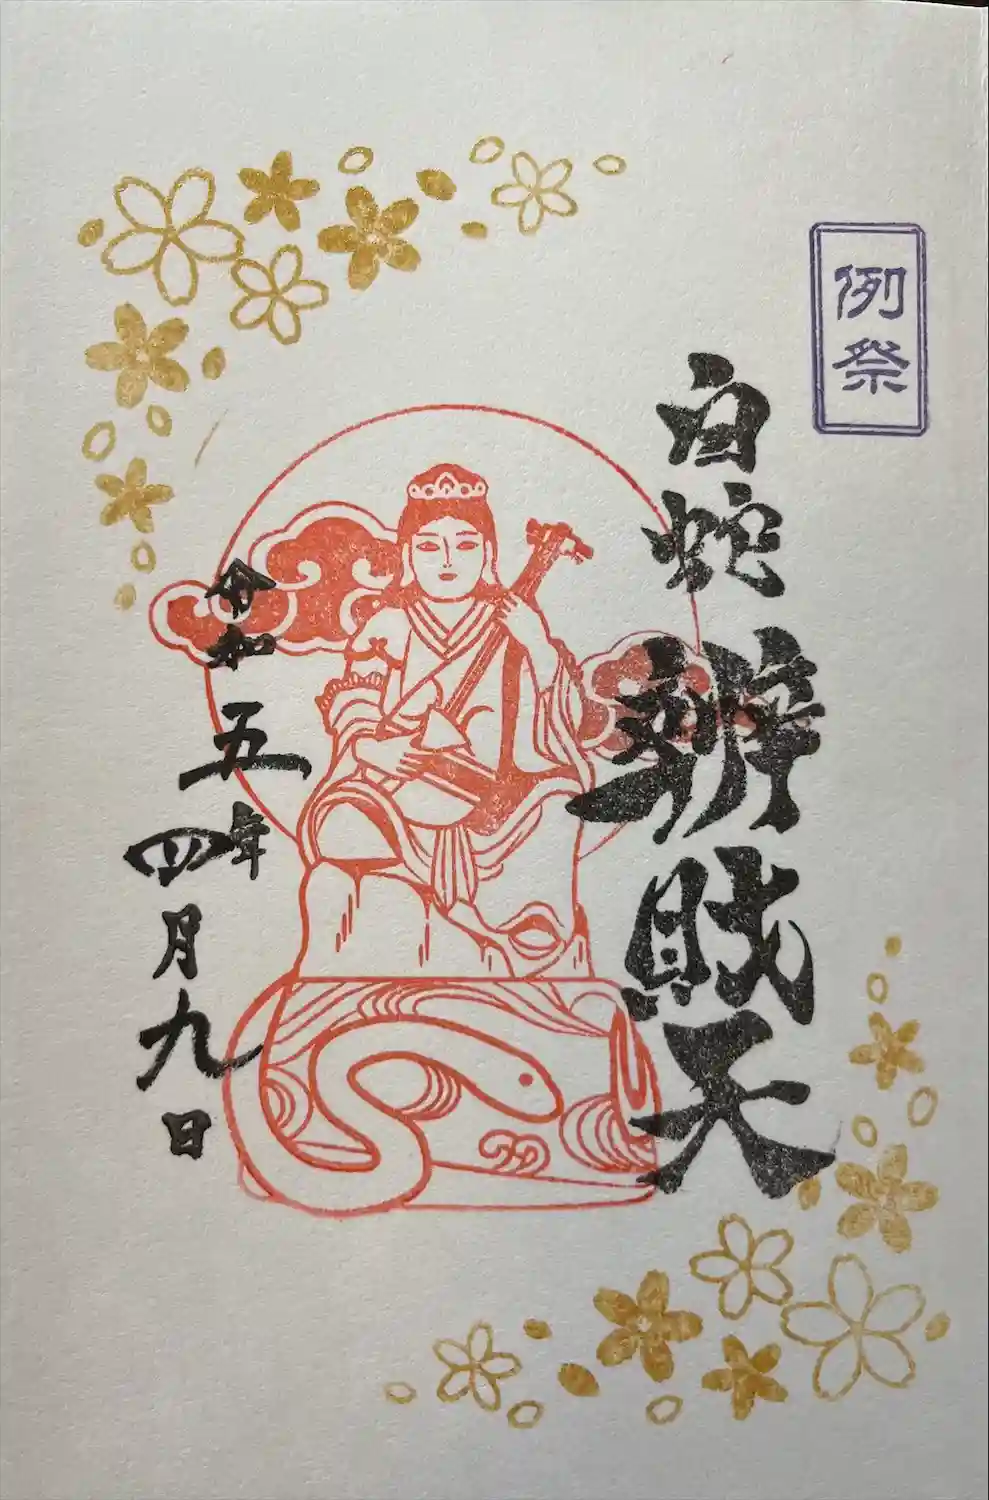 例祭
白蛇辨財天
令和五年
四月九日